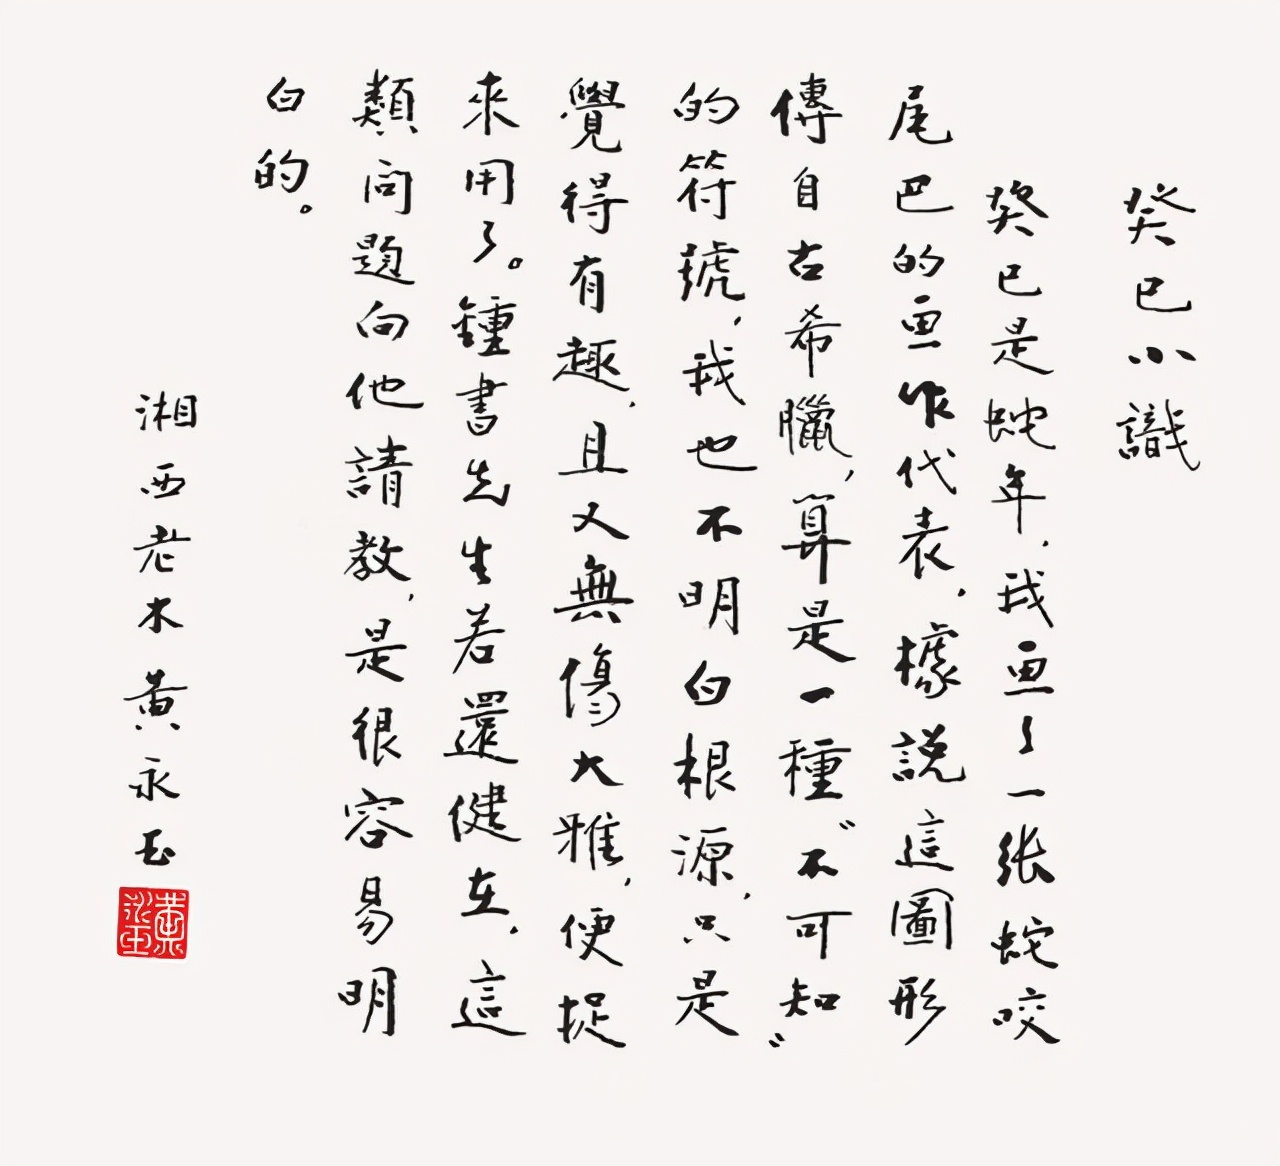 癸巳小識
癸巳是蛇年，我画了一张蛇咬
尾巴的画作代表，據説這圖形
傳自古希臘，算是一種“不可知”
的符號，我也不明白根源，只是
覺得有趣，且又無傷大雅，便捉
來用了。鍾書先生若還健在，這
類问題向他請教，是很容易明
白的。
湘西老木黄永玉
黄永玉